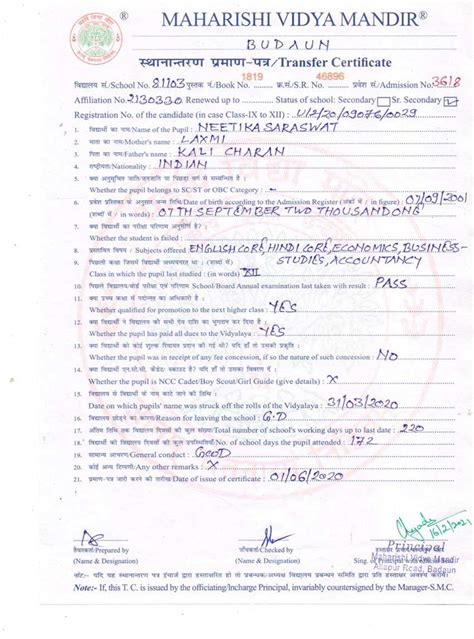 MAHARISHI VIDYA MANDIR®
BUDAUN
स्थानान्तरण प्रमाण-पत्र/Transfer Certificate
विद्यालय सं./School No. 81103 पुस्तक नं./Book No. 1819 क्र.सं./S.R. No. 46896 प्रवेश सं./Admission No. 3618
Affiliation No. 2130330 Renewed up to Status of school: Secondary Sr. Secondary
Registration No. of the candidate (in case Class-IX to XII) : U/2/20/09076/0029
1. विद्यार्थी का नाम/Name of the Pupil : NEETIKA SARASWAT
2. माता का नाम/Mother's name : LAXMI
3. पिता का नाम/Father's name : KALI CHARAN
4. राष्ट्रीयता/Nationality : INDIAN
5. क्या अनुसूचित जाति/जनजाति या पिछड़ा वर्ग से सम्बन्धित है
Whether the pupil belongs to SC/ST or OBC Category : -
6. प्रवेश पुस्तिका के अनुसार जन्म तिथि/Date of birth according to the Admission Register (अंकों में / in figure) : 07/09/2001
(शब्दों में / in words) : 07TH SEPTEMBER TWO THOUSAND ONE
7. क्या विद्यार्थी का परीक्षा परिणाम अनुत्तीर्ण है?
Whether the student is failed :
8. प्रस्तावित विषय / Subjects offered ENGLISH CORE, HINDI CORE, ECONOMICS, BUSINESS-
9. पिछली कक्षा जिसमें विद्यार्थी अध्ययनरत था : (शब्दों में) STUDIES, ACCOUNTANCY
Class in which the pupil last studied : (in words) XII
10. पिछले विद्यालय/बोर्ड परीक्षा का परिणाम School/Board Annual examination last taken with result : PASS
11. क्या उच्च कक्षा में पदोन्नत का अधिकारी है।
Whether qualified for promotion to the next higher class : YES
12. क्या विद्यार्थी ने विद्यालय की सभी देय राशि का भुगतान कर दिया है।
Whether the pupil has paid all dues to the Vidyalaya : YES
13. क्या विद्यार्थी को कोई शुल्क रियायत प्रदान की गई थी, यदि हाँ तो उसकी प्रकृति ।
Whether the pupil was in receipt of any fee concession, if so the nature of such concession : NO
14. क्या विद्यार्थी एन.सी.सी. कैडेट/स्काउट है? यदि हाँ तो उसका विवरण दें।
Whether the pupil is NCC Cadet/Boy Scout/Girl Guide (give details) : X
15. विद्यालय से विद्यार्थी के नाम काटे जाने की तिथि।
Date on which pupils' name was struck off the rolls of the Vidyalaya : 31/03/2020
16. विद्यालय छोड़ने का कारण/Reason for leaving the school : G.D
17. अंतिम तिथि तक विद्यालय दिवसों की कुल संख्या/Total number of school's working days up to last date : 220
18. विद्यार्थी की विद्यालय दिवसों की कुल उपस्थितियाँ/No. of school days the pupil attended : 172
19. सामान्य आचरण/General conduct : GOOD
20. कोई अन्य टिप्पणी/Any other remarks : X
21. प्रमाण-पत्र जारी करने की तारीख/Date of issue of certificate : 01/06/2020
16/2/2021
तैयारकर्ता/Prepared by
(Name & Designation)
जाँचकर्ता/Checked by
(Name & Designation)
Principal
Maharishi Vidya Mandir
Sing. of Principal with official Seal
Allapur Road, Badaun
नोटः- यदि यह स्थानान्तरण पत्र इंचार्ज द्वारा हस्तान्तरित हो तो प्रबन्धक-अध्यक्ष विद्यालय प्रबन्धन समिति द्वारा प्रति हस्ताक्षर अवश्य करायें।
Note:- If, this T. C. is issued by the officiating/Incharge Principal, invariably countersigned by the Manager-S.M.C.